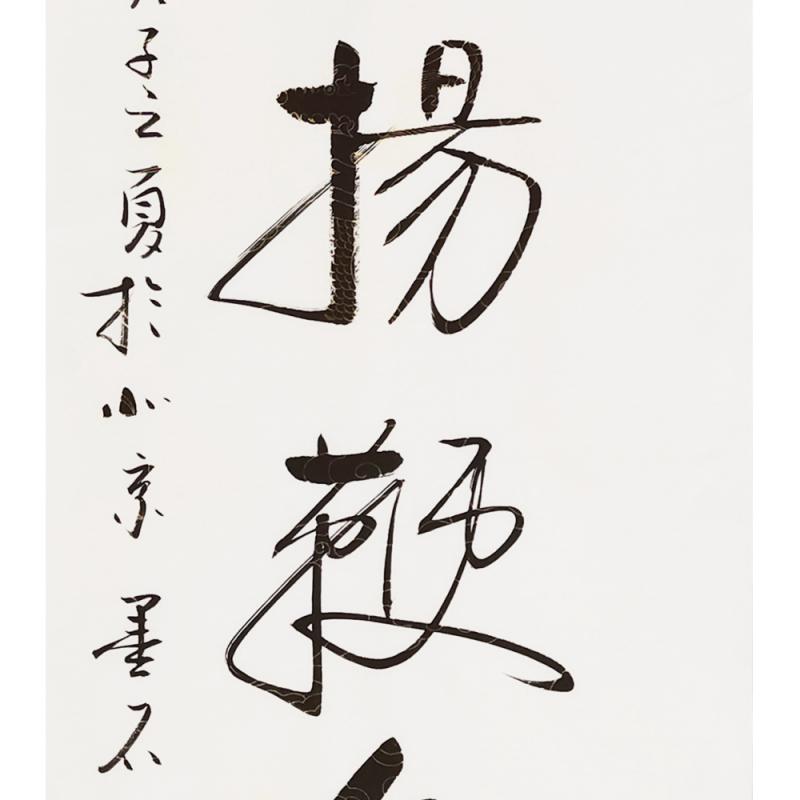 揚鞭
子之夏於北京 墨石